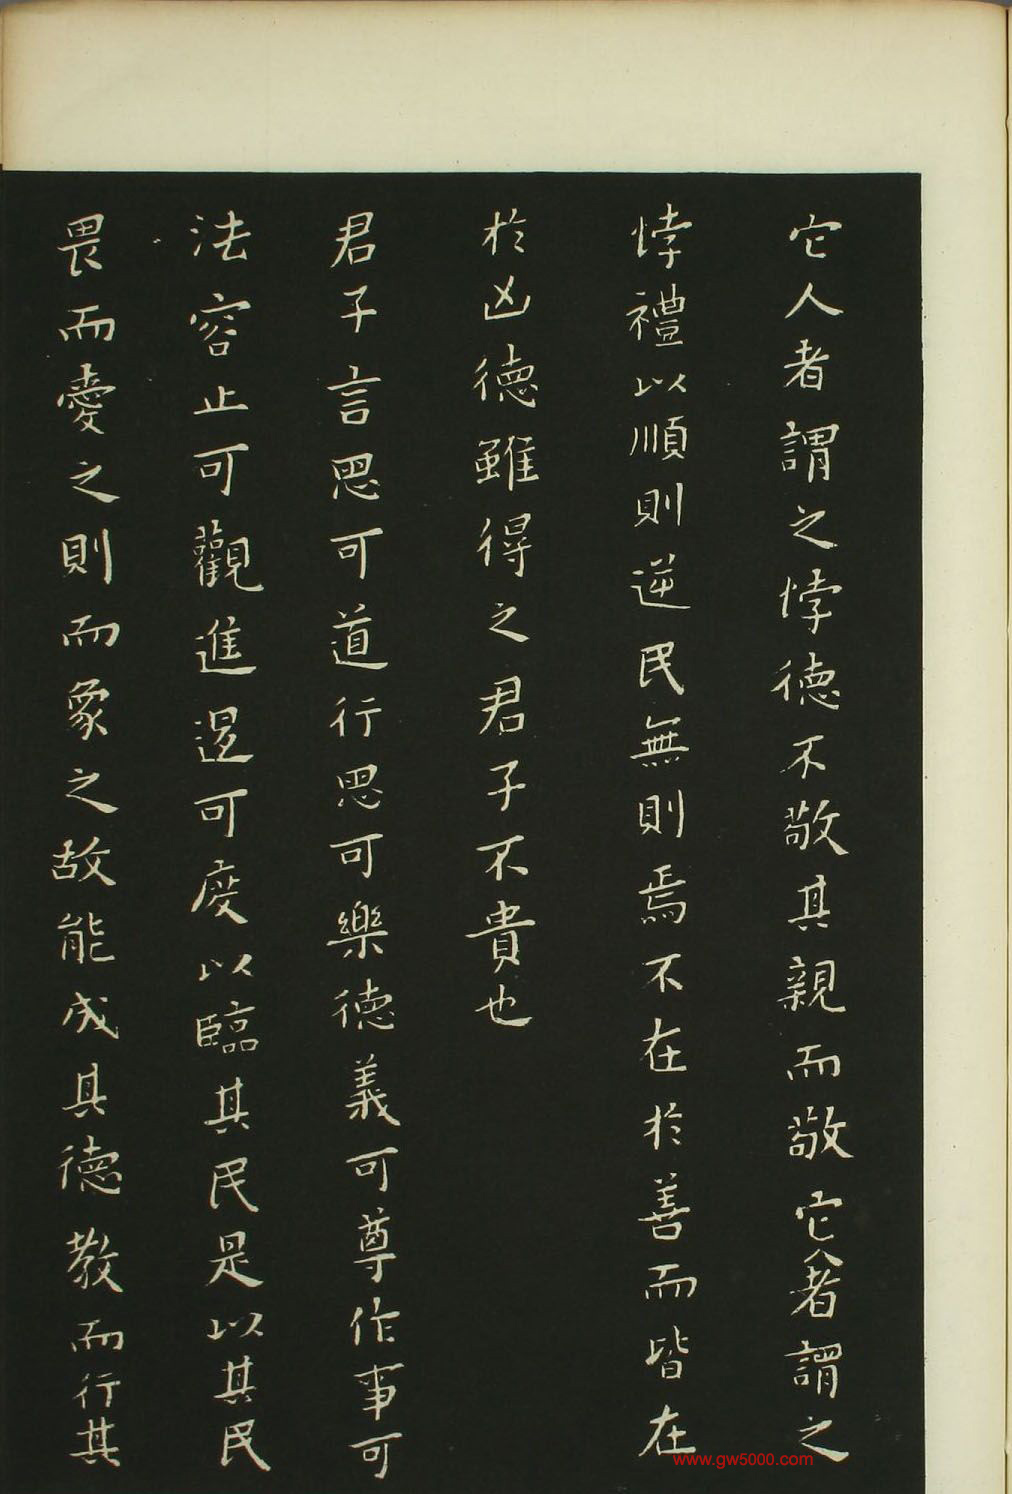 它人者謂之悖德不敬其親而敬它人者謂之
悖禮以順則逆民無則焉不在於善而皆在
於凶德雖得之君子不貴也
君子言思可道行思可樂德義可尊作事可
法容止可觀進退可度以臨其民是以其民
畏而愛之則而象之故能成其德教而行其
www.gw5000.com